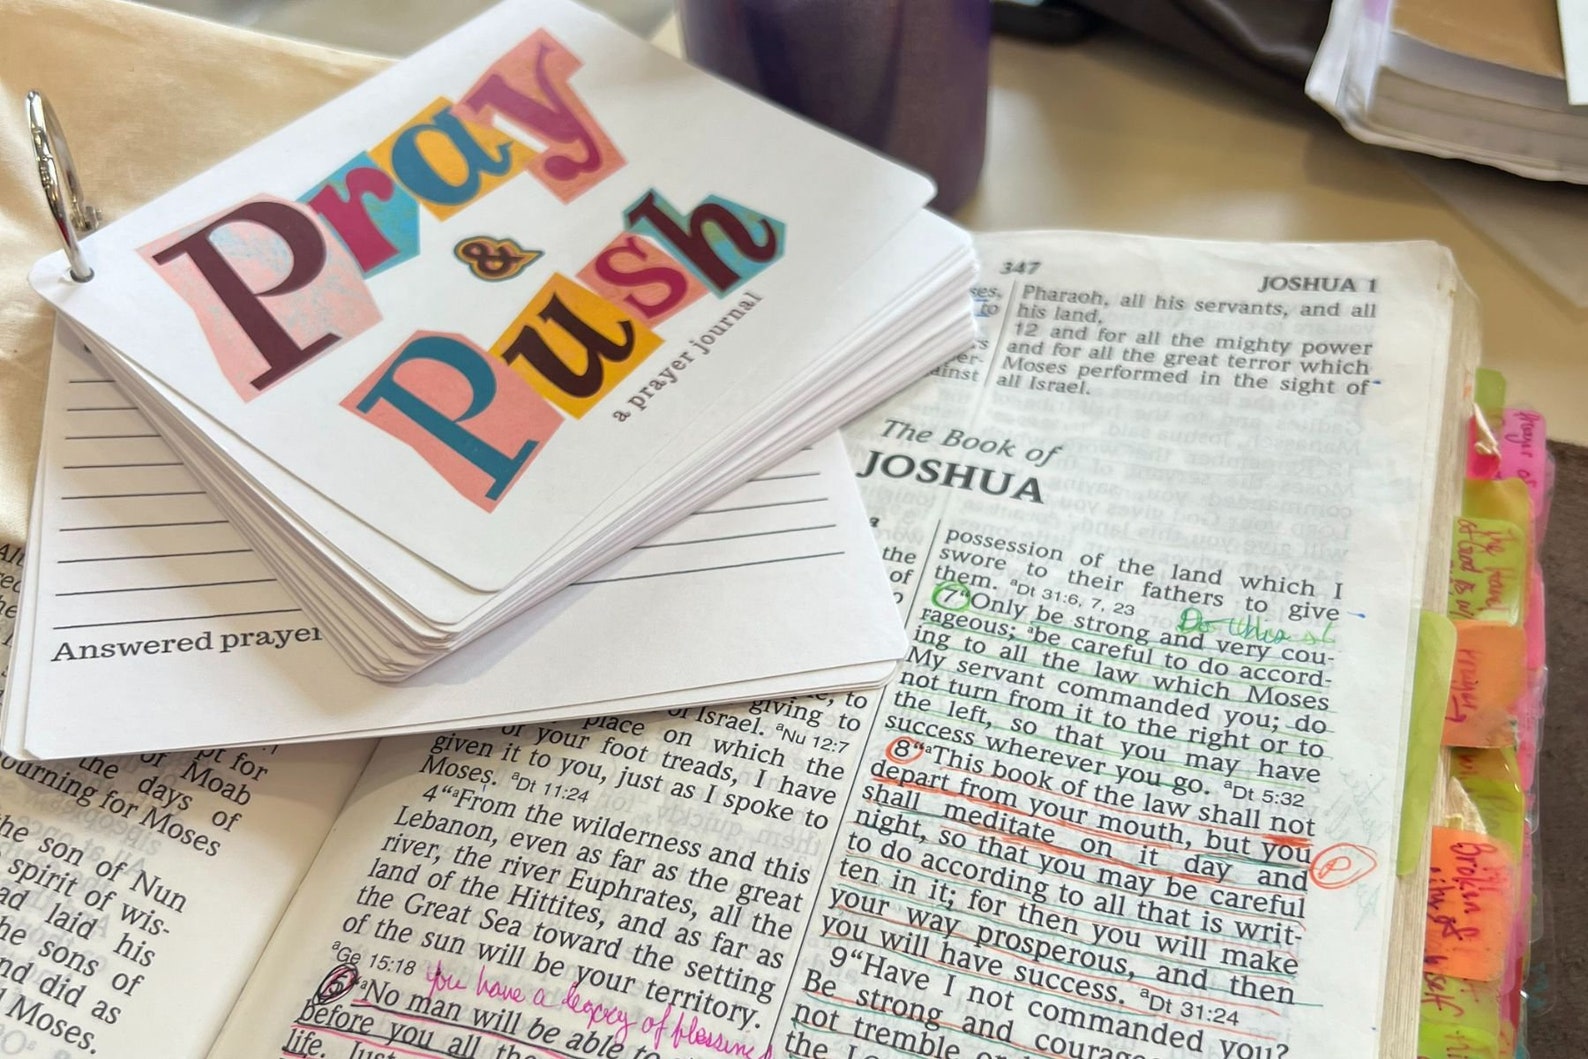 Pray
&
Push
a prayer journal
Answered prayer
347
JOSHUA 1
Pharaoh, all his servants, and all
his land,
12 and for all the mighty power
and for all the great terror which
Moses performed in the sight of
all Israel.
The Book of
JOSHUA
the
of
giving to
of Israel. ᵃNu 12:7
place on which the
of your foot treads, I have
given it to you, just as I spoke to
Moses. ᵃDt 11:24
4 “ᵃFrom the wilderness and this
Lebanon, even as far as the great
river, the river Euphrates, all the
land of the Hittites, and as far as
the Great Sea toward the setting
of the sun will be your territory.
ᵃGe 15:18 you have a legacy of blessing
5 “ᵃNo man will be able to
before you all the
life. Just
possession of the land which I
swore to their fathers to give
them. ᵃDt 31:6, 7, 23
7 “Only be strong and very cou-
rageous; ᵃbe careful to do accord-
ing to all the law which Moses
My servant commanded you; do
not turn from it to the right or to
the left, so that you may have
success wherever you go. ᵃDt 5:32
8 “ᵃThis book of the law shall not
depart from your mouth, but you
shall meditate on it day and
night, so that you may be careful
to do according to all that is writ-
ten in it; for then you will make
your way prosperous, and then
you will have success. ᵃDt 31:24
9 “Have I not commanded you?
Be strong and courage
not tremble or
the Lo
P
pt for
or Moab
the days of
ourning for Moses
he son of Nun
spirit of wis-
ad laid his
he sons of
nd did as
Moses.